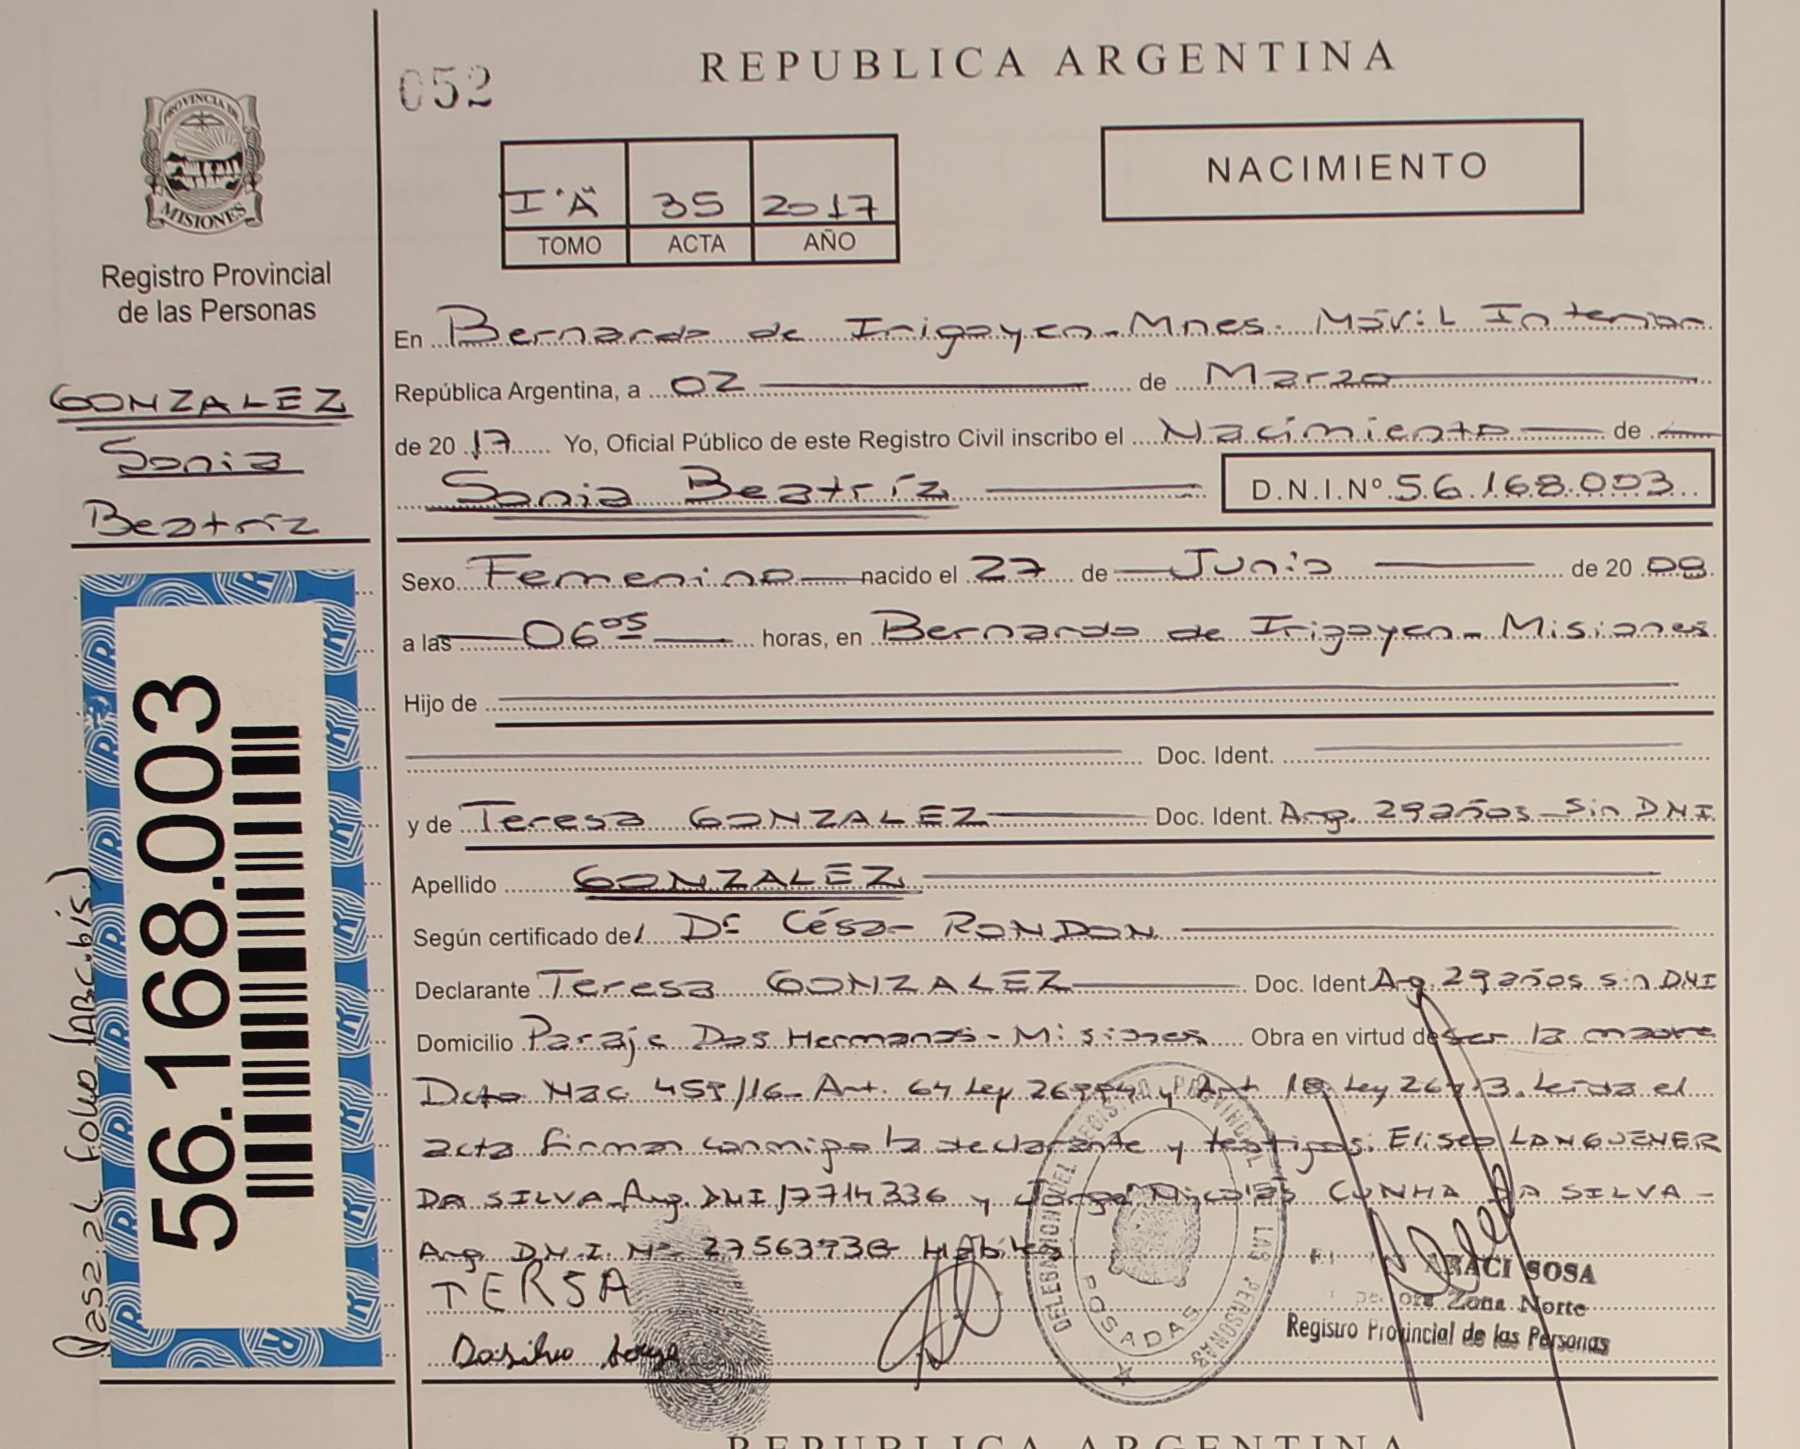 052
REPUBLICA ARGENTINA
PROVINCIA DE
MISIONES
Registro Provincial
de las Personas
I°"A" 35 2017
TOMO ACTA AÑO
NACIMIENTO
GONZALEZ
Sonia
Beatríz
56.168.003
Pasa al Folio (ABC.bis.)
En Bernardo de Irigoyen - Mnes. Móvil Interior
República Argentina, a 02 de Marzo
de 2017 Yo, Oficial Público de este Registro Civil inscribo el Nacimiento de
Sonia Beatríz D.N.I.Nº 56.168.003
Sexo Femenino nacido el 27 de Junio de 2008
a las 06 05 horas, en Bernardo de Irigoyen - Misiones
Hijo de
Doc. Ident.
y de Teresa GONZALEZ Doc. Ident. Arg. 29 años - Sin DNI
Apellido GONZALEZ
Según certificado del Dr César RONDON
Declarante Teresa GONZALEZ Doc. Ident Arg. 29 años sin DNI
Domicilio Paraje Dos Hermanas - Misiones Obra en virtud de ser la madre
Dcto Nac 459/16 - Art. 64 Ley 26994 y Art 18 Ley 26413. Leída el
acta firman conmigo la declarante y testigos: Eliseo LANGUENER
DA SILVA - Arg. DNI 17714336 y Jorge Nicolás CUNHA DA SILVA -
Arg D.N.I. Nº 27563938 Hábiles
TERSA
Dasilva Jorge
DELEGACION DEL REGISTRO PROVINCIAL DE LAS PERSONAS
POSADAS
ARACI SOSA
Zona Norte
Registro Provincial de las Personas
REPUBLICA ARGENTINA